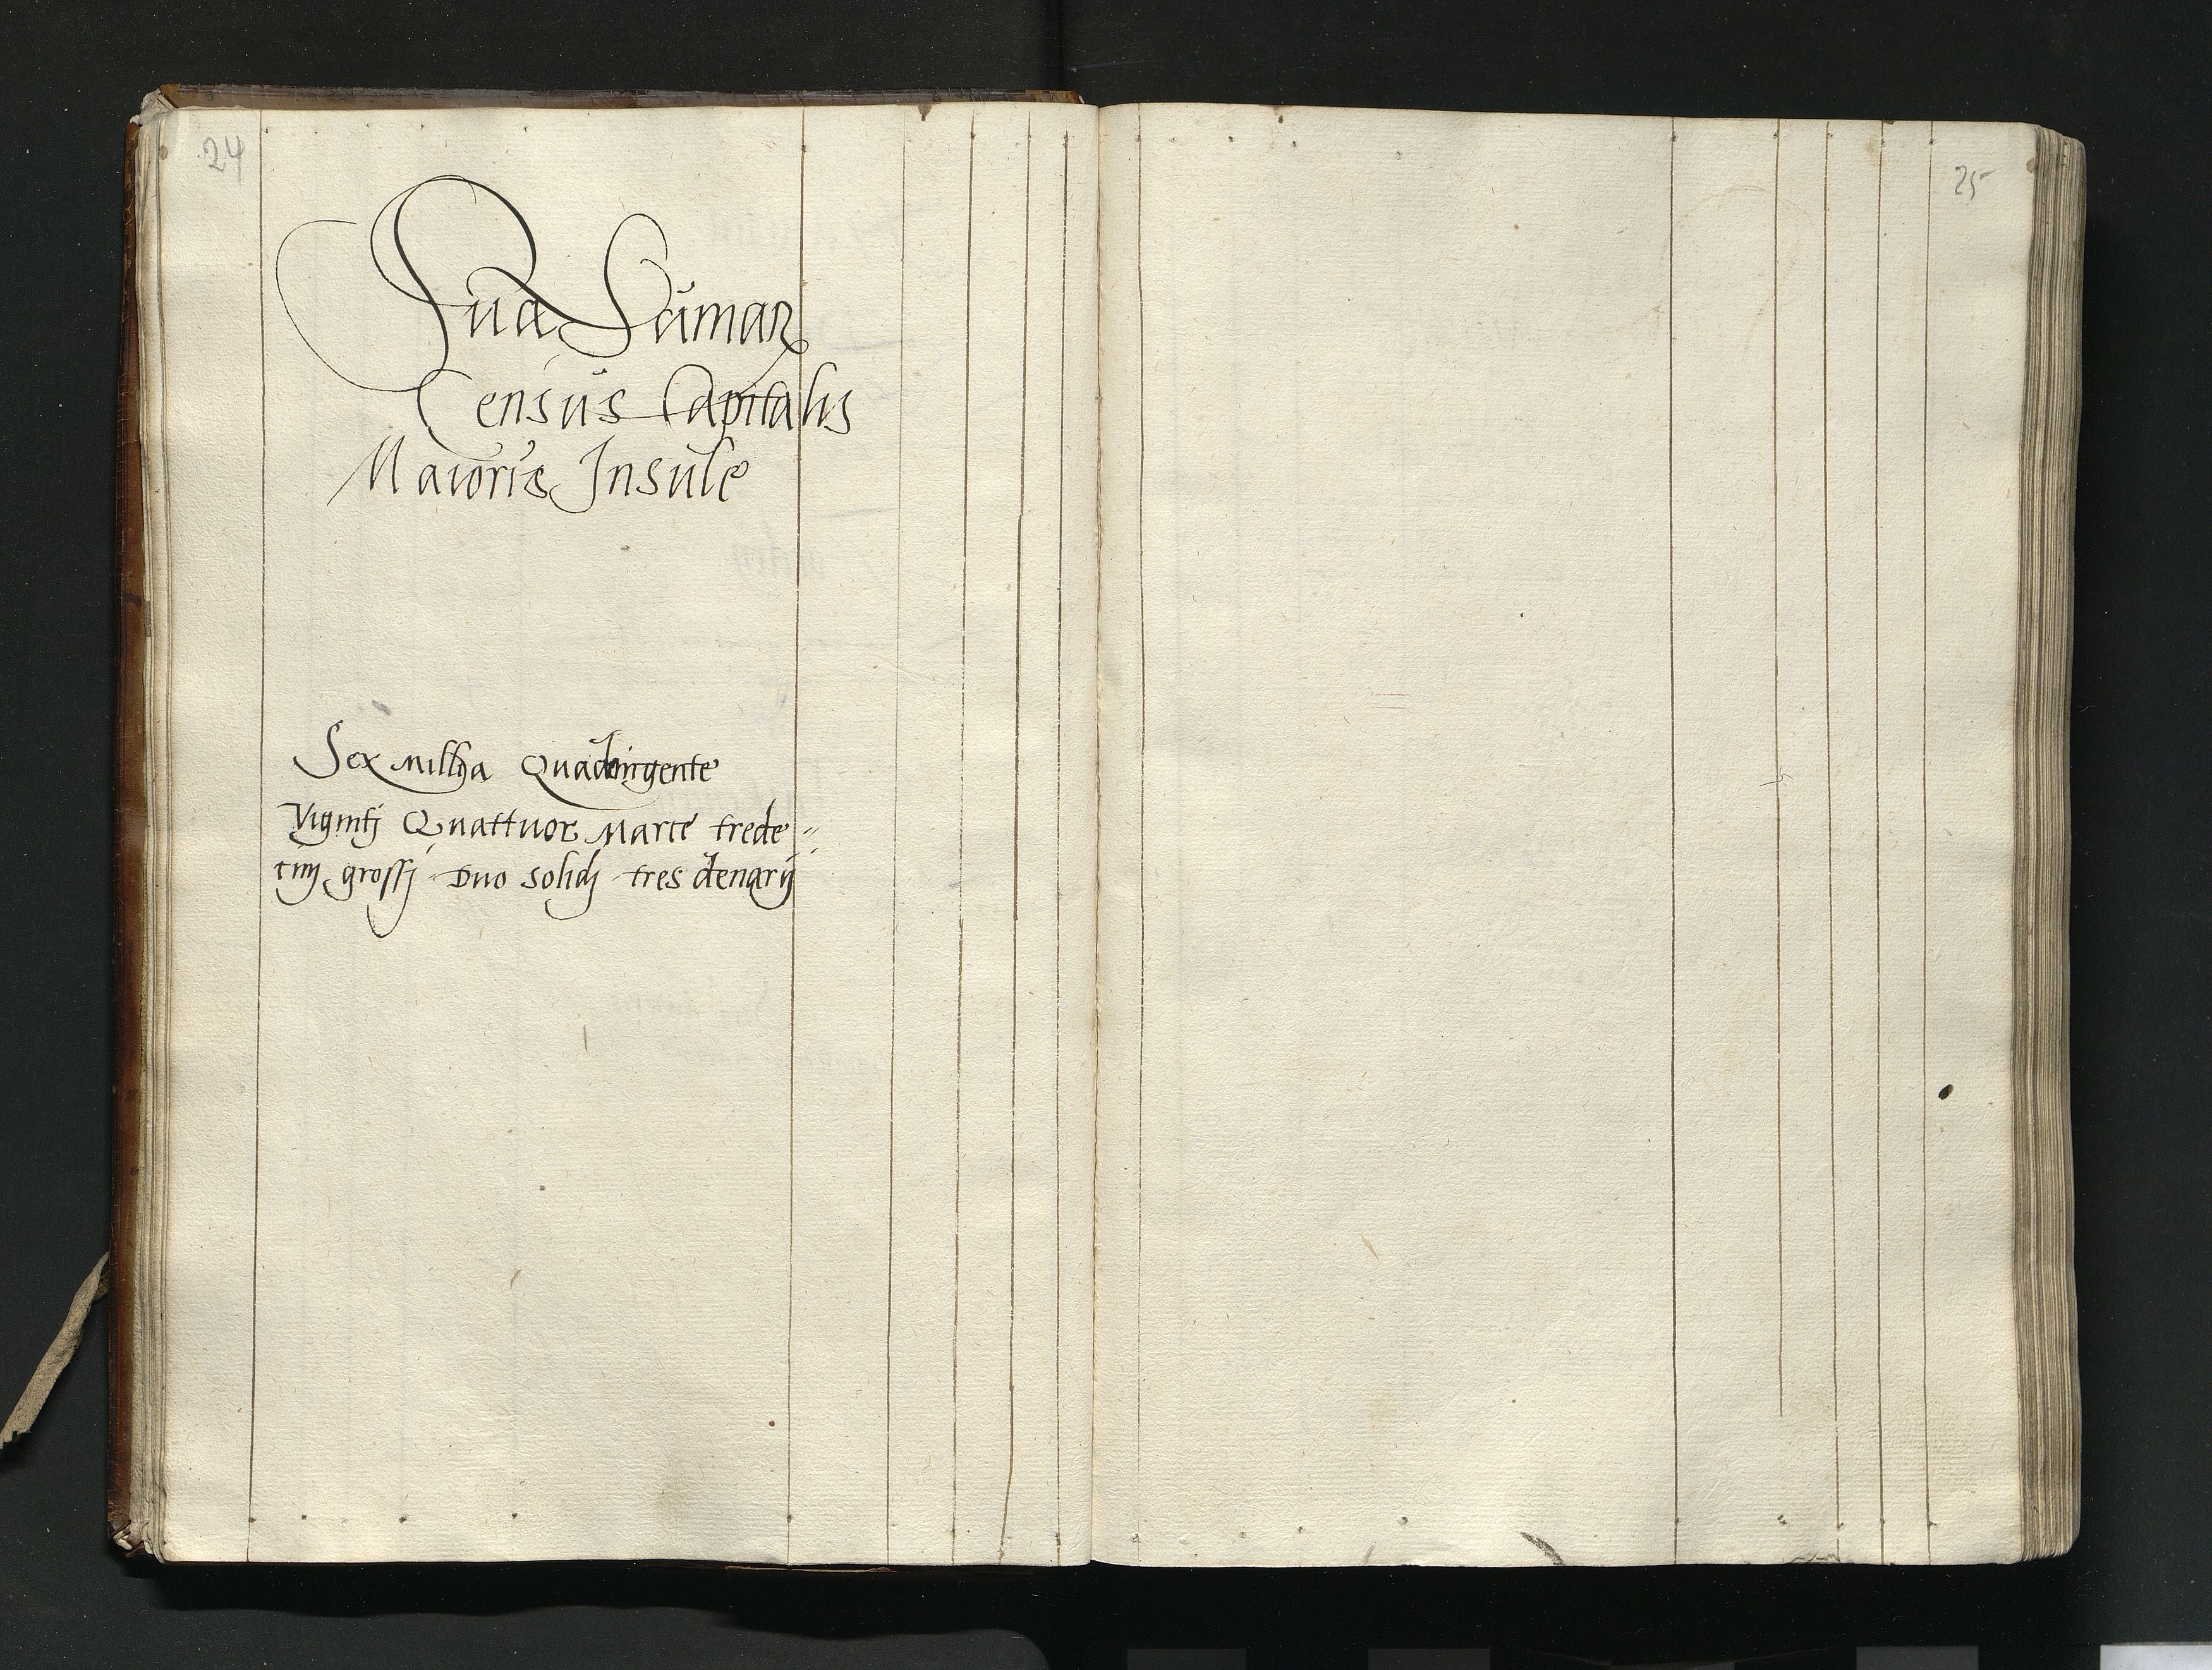 24
Sua Sumar
Census Capitalis
Maioris Insule
Sex millia Quadringente
Viginti Quattuor Marce trede=
cim grossj Duo solidj tres denarij
25